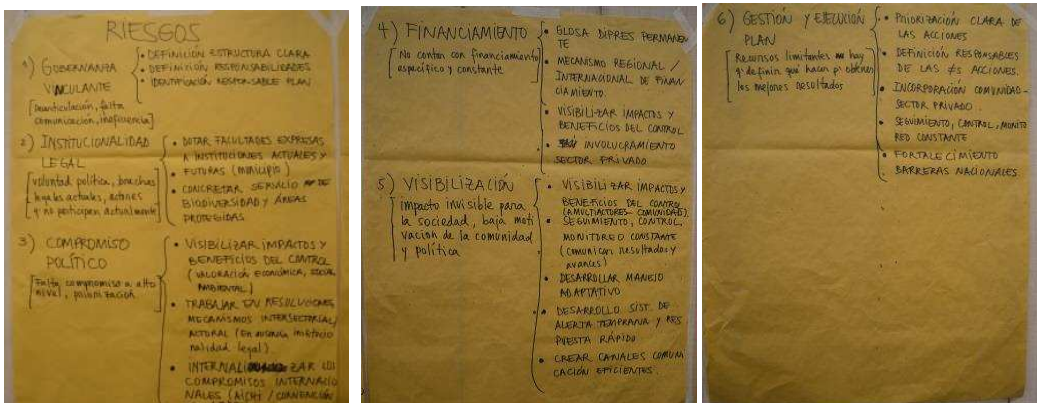 RIESGOS
1) GOBERNANZA VINCULANTE
[Desarticulación, falta
comunicación, ineficiencia]
• DEFINICIÓN ESTRUCTURA CLARA
• DEFINICIÓN RESPONSABILIDADES
• IDENTIFICACIÓN RESPONSABLE PLAN
2) INSTITUCIONALIDAD
LEGAL
[voluntad política, brechas
legales actuales, actores
q no participen actualmente]
• DOTAR FACULTADES EXPRESAS
A INSTITUCIONES ACTUALES Y
• FUTURAS (MUNICIPIO)
• CONCRETAR SERVICIO DE
BIODIVERSIDAD Y ÁREAS
PROTEGIDAS
3) COMPROMISO
POLÍTICO
[Falta compromiso a alto
nivel, polinización]
• VISIBILIZAR IMPACTOS Y
BENEFICIOS DEL CONTROL
(VALORACIÓN ECONÓMICA, SOCIAL
AMBIENTAL)
• TRABAJAR EN RESOLUCIONES
MECANISMOS INTERSECTORIAL/
ACTORAL (En ausencia institucio
nalidad legal)
• INTERNALIZAR LOS
COMPROMISOS INTERNACIO
NALES (AICHI / CONVENCIÓN
4) FINANCIAMIENTO
[No contar con financiamiento
específico y constante]
• GLOSA DIPRES PERMANEN
TE
• MECANISMO REGIONAL /
INTERNACIONAL DE FINAN
CIAMIENTO.
• VISIBILIZAR IMPACTOS Y
BENEFICIOS DEL CONTROL
• INVOLUCRAMIENTO
SECTOR PRIVADO
5) VISIBILIZACIÓN
[impacto invisible para
la sociedad, baja moti
vación de la comunidad
y política
• VISIBILIZAR IMPACTOS Y
BENEFICIOS DEL CONTROL
(A MULTIACTORES - COMUNIDAD).
• SEGUIMIENTO, CONTROL,
MONITOREO CONSTANTE
(comunicar resultados y
avances)
• DESARROLLAR MANEJO
ADAPTATIVO
• DESARROLLO SIST. DE
ALERTA TEMPRANA Y RES
PUESTA RÁPIDO
• CREAR CANALES COMUNI
CACIÓN EFICIENTES.
6) GESTIÓN Y EJECUCIÓN
PLAN
[Recursos limitantes no hay
q definir qué hacer p' obtener
los mejores resultados
• PRIORIZACIÓN CLARA DE
LAS ACCIONES
• DEFINICIÓN RESPONSABLES
DE LAS ≠S ACCIONES.
• INCORPORACIÓN COMUNIDAD-
SECTOR PRIVADO.
• SEGUIMIENTO, CONTROL, MONITO
REO CONSTANTE
• FORTALECIMIENTO
BARRERAS NACIONALES.